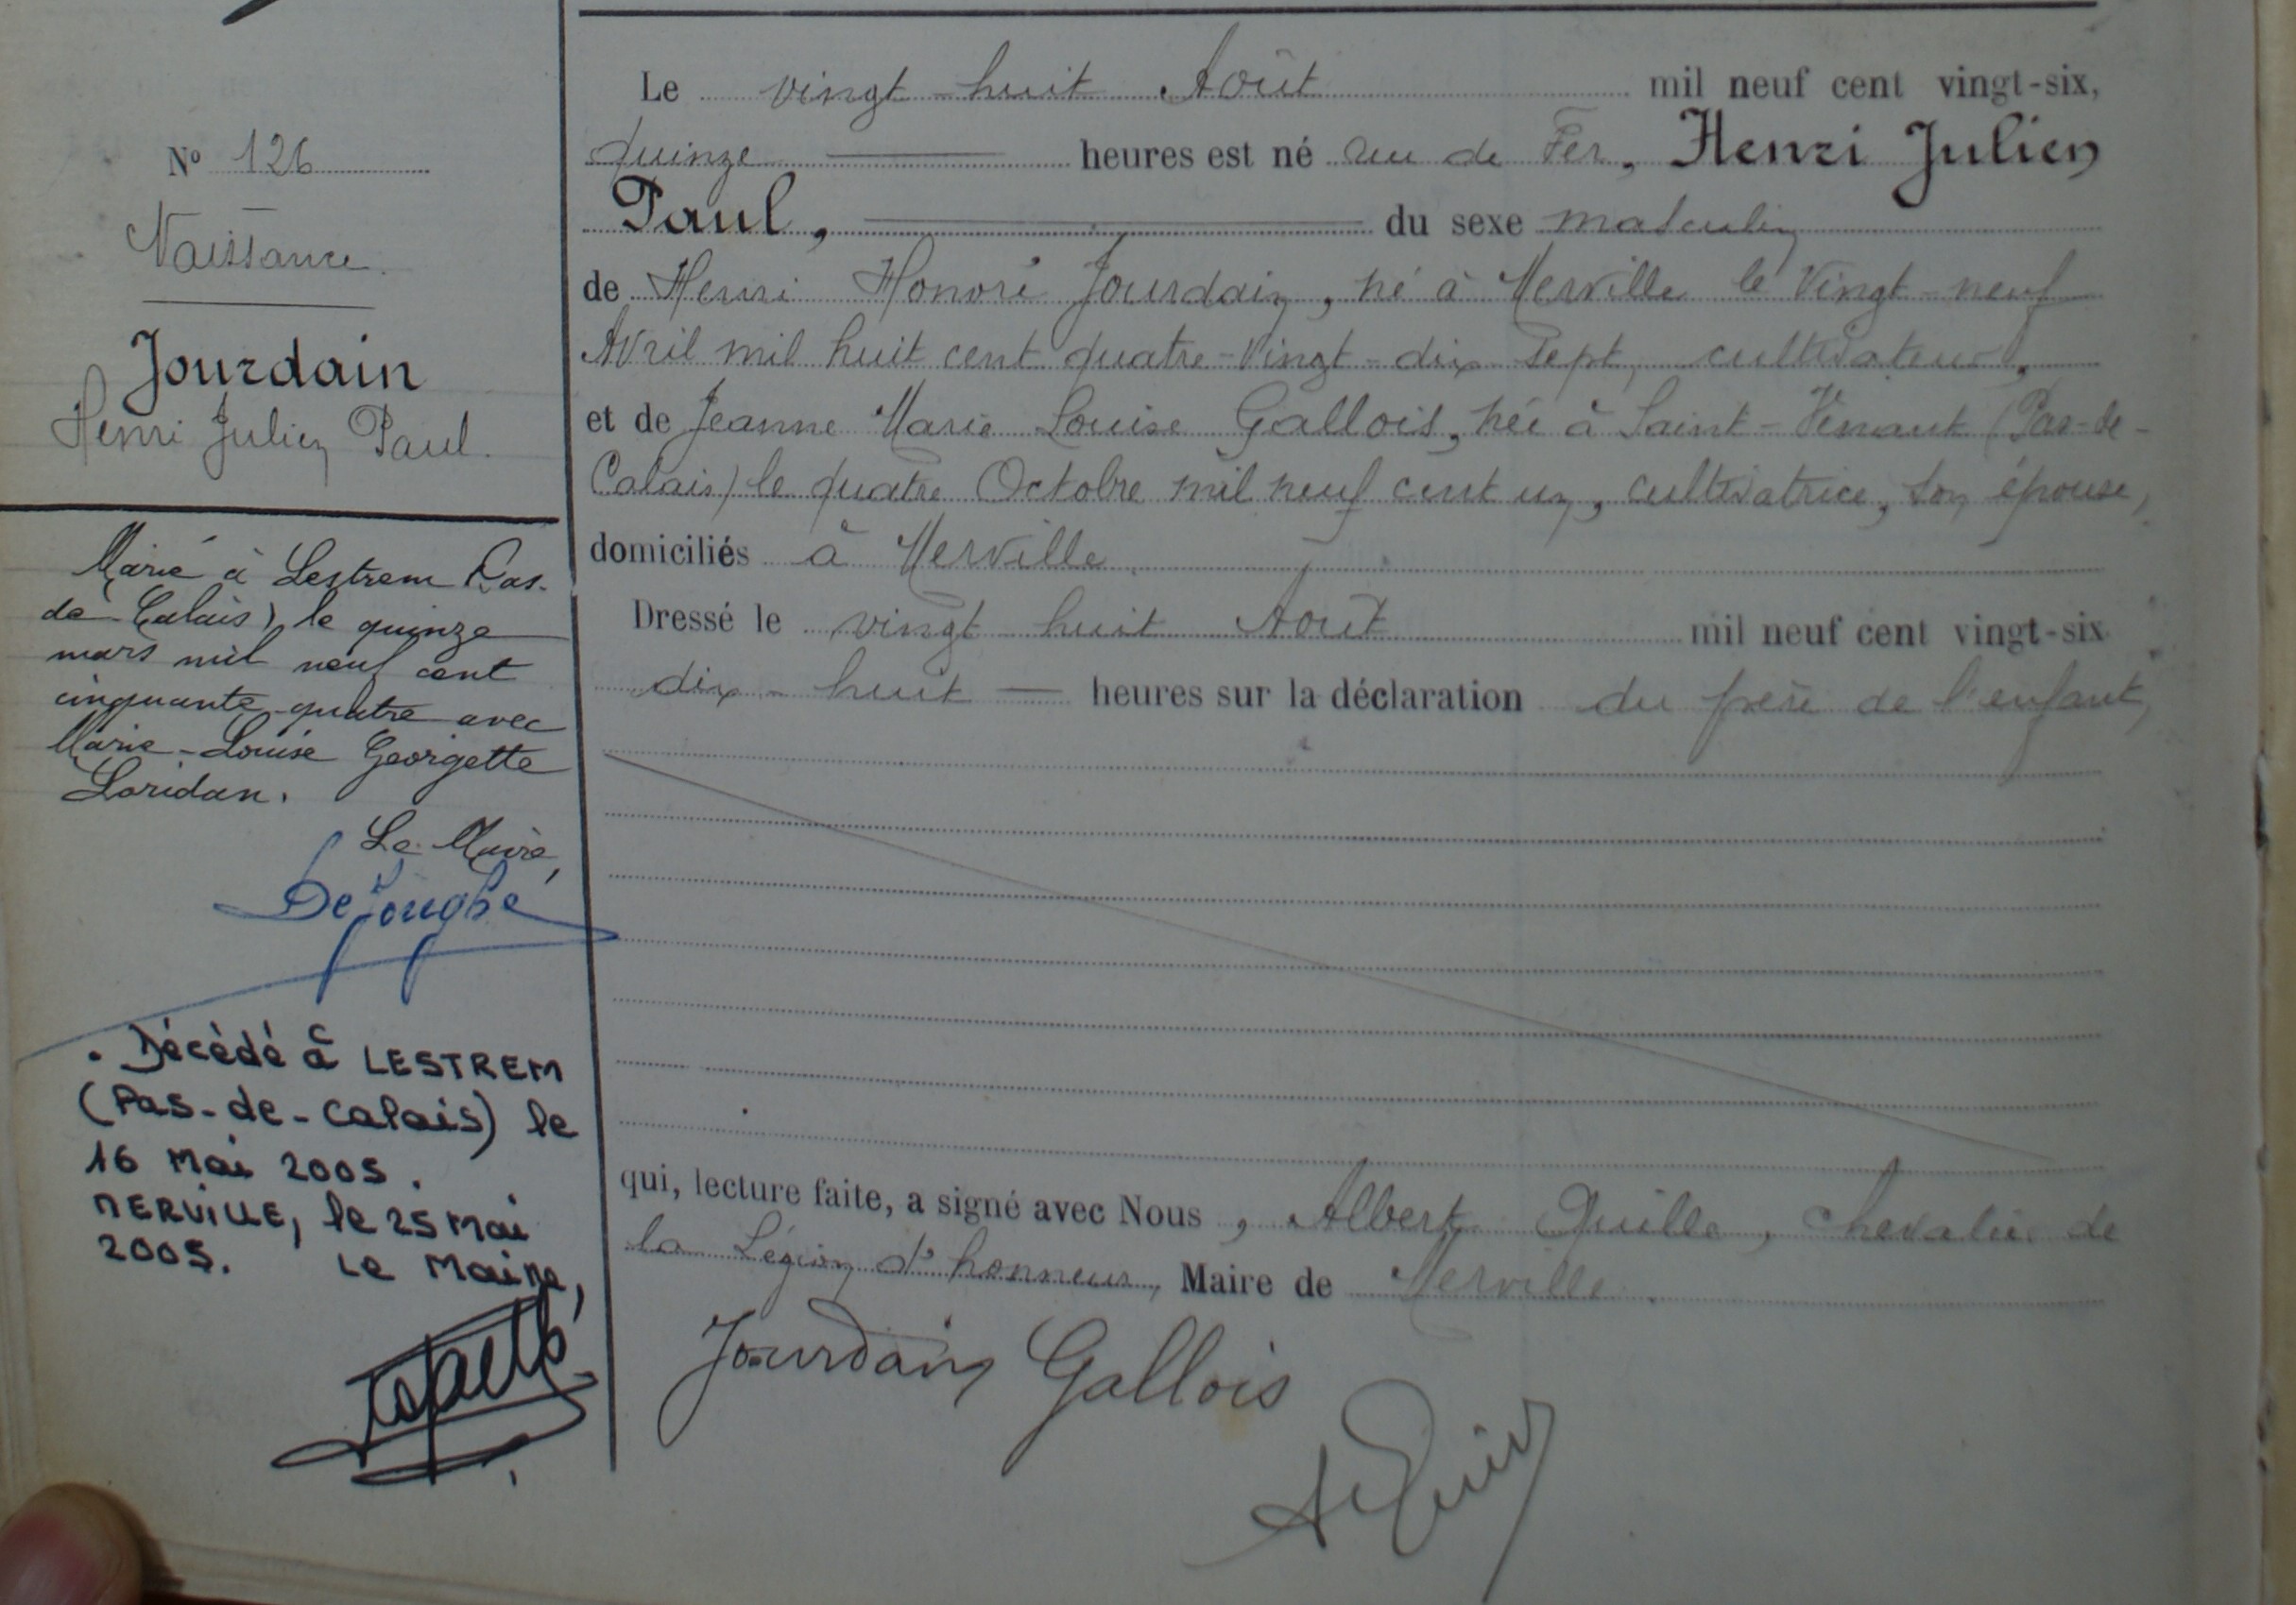 N° 126
Naissance.
Jourdain
Henri Julien Paul.
Marié à Lestrem (Pas-
de-Calais) le quinze
mars mil neuf cent
cinquante-quatre avec
Marie-Louise Georgette
Loridan.
Le Maire,
. Décédé à LESTREM
(Pas-de-Calais) le
16 Mai 2005.
MERVILLE, le 25 Mai
2005. Le Maire,
Le vingt-huit Août mil neuf cent vingt-six,
quinze heures est né rue de Fer, Henri Julien
Paul, du sexe masculin
de Henri Honoré Jourdain, né à Merville le Vingt-neuf
Avril mil huit cent quatre-Vingt-dix-sept, cultivateur,
et de Jeanne Marie Louise Gallois, née à Saint-Venant (Pas-de-
Calais) le quatre Octobre mil neuf cent un, cultivatrice, son épouse,
domiciliés à Merville.
Dressé le vingt huit Août mil neuf cent vingt-six
dix-huit heures sur la déclaration du père de l'enfant,
qui, lecture faite, a signé avec Nous, Albert Quille, chevalier de
la Légion d'honneur, Maire de Merville.
Jourdain Gallois